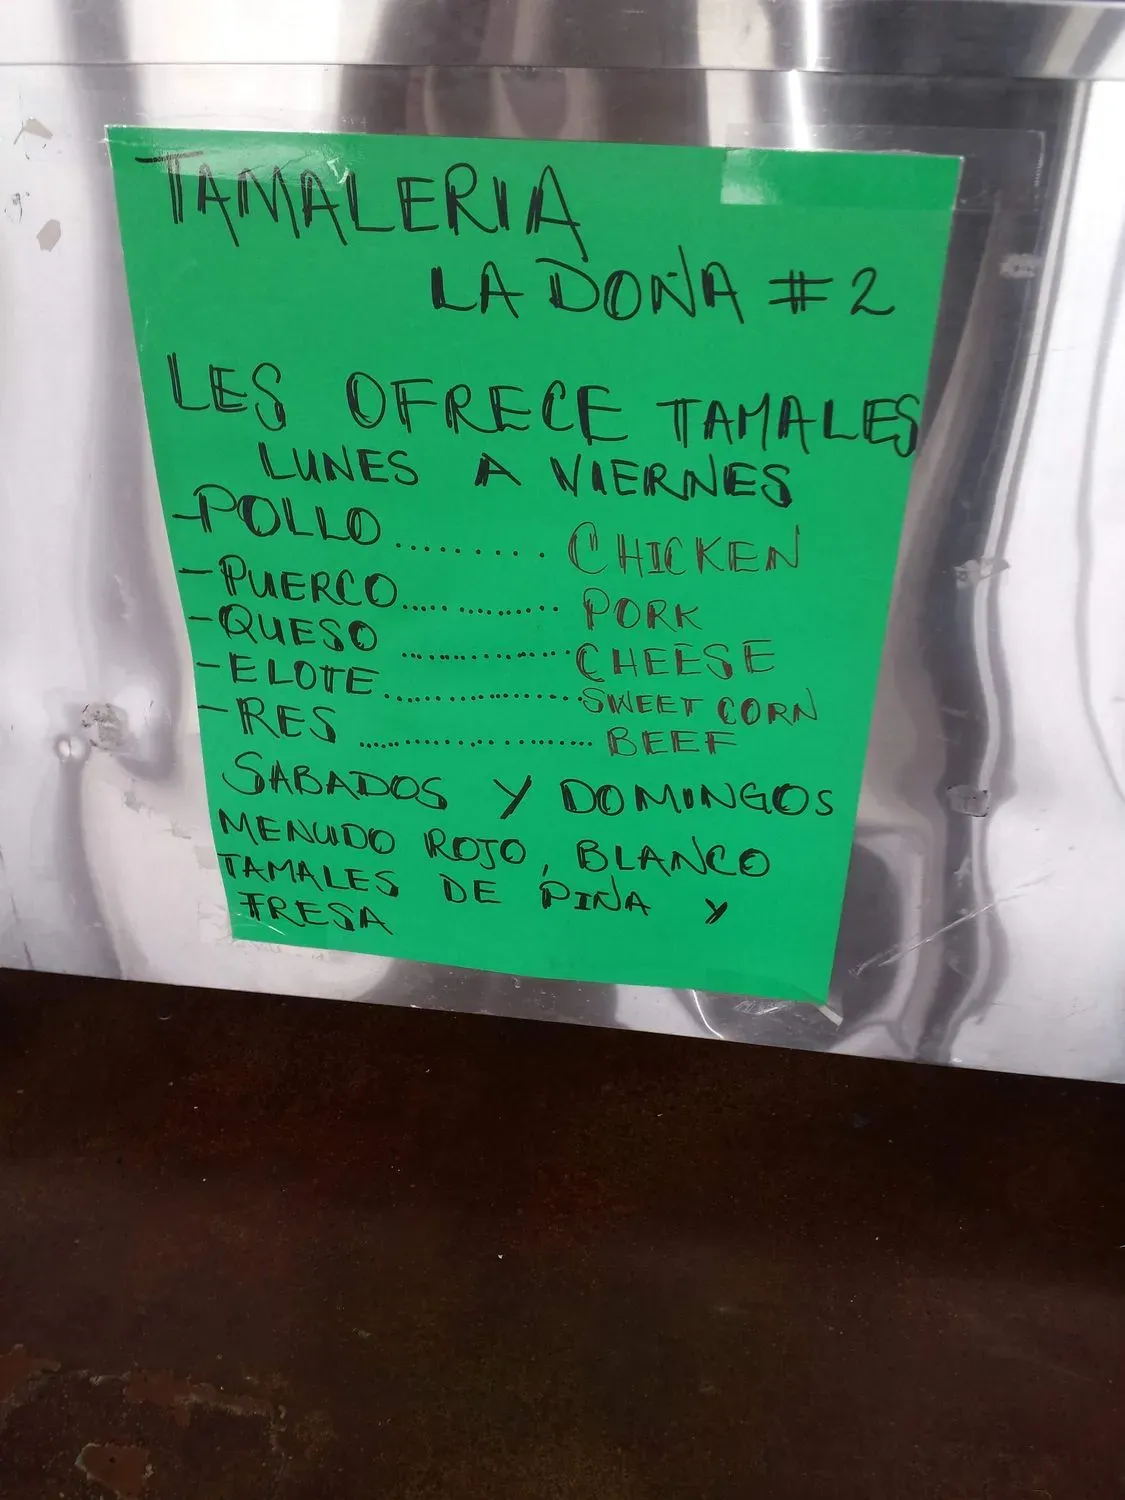 TAMALERIA
LA DOÑA #2
LES OFRECE TAMALES
LUNES A VIERNES
-POLLO......... CHICKEN
-PUERCO............. PORK
-QUESO ...............CHEESE
-ELOTE..................SWEET CORN
-RES ..................... BEEF
SABADOS Y DOMINGOS
MENUDO ROJO, BLANCO
TAMALES DE PIÑA Y
FRESA